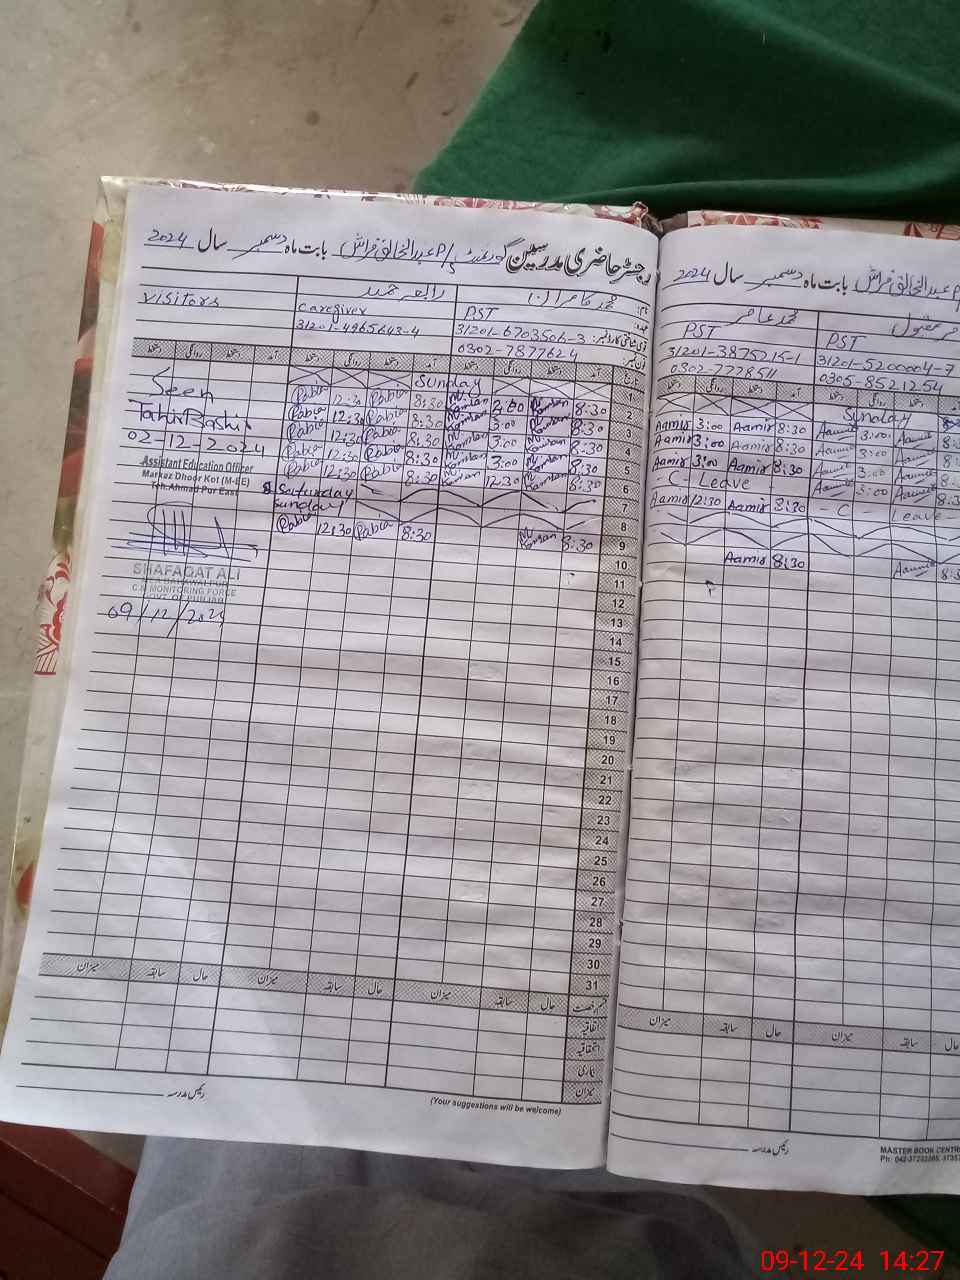 رجسٹر حاضری مدرسین گورنمنٹ P/S عبدالخالق فراش بابت ماہ دسمبر سال 2024
نام: محمد کامران رابعہ حمید
عہدہ: PST Caregiver Visitors
قومی شناختی کارڈ نمبر: 31201-6703506-3 31201-4965643-4
فون نمبر: 0302-7877624
تاریخ آمد دستخط روانگی دستخط آمد دستخط روانگی دستخط آمد دستخط روانگی دستخط
1 Sunday
2 8:30 M. Kamran 3:00 M. Kamran 8:30 Rabia 12:30 Rabia
3 8:30 M. Kamran 3:00 M. Kamran 8:30 Rabia 12:30 Rabia
4 8:30 M. Kamran 3:00 M. Kamran 8:30 Rabia 12:30 Rabia
5 8:30 M. Kamran 3:00 M. Kamran 8:30 Rabia 12:30 Rabia
6 8:30 M. Kamran 12:30 M. Kamran 8:30 Rabia 12:30 Rabia
7 Saturday
8 Sunday
9 8:30 M. Kamran 8:30 Rabia 12:30 Rabia
10
11
12
13
14
15
16
17
18
19
20
21
22
23
24
25
26
27
28
29
30
31
Seen
Tahir Bashir
02-12-2024
Assistant Education Officer
Markaz Dhoor Kot (M-EE)
Teh. Ahmad Pur East
SHAFAQAT ALI
C.M MONITORING FORCE
GOVT. OF PUNJAB
09/12/2024
قسم رخصت حال سابقہ میزان حال سابقہ میزان حال سابقہ میزان
اتفاقیہ
استحقاقیہ
بیماری
میزان
(Your suggestions will be welcome)
رئیس مدرسہ
P عبدالخالق فراش بابت ماہ دسمبر سال 2024
محمد عامر
PST PST
31201-5200004-7 31201-3875215-1
0305-8521254 0302-7778511
آمد دستخط روانگی دستخط
Sunday
Aamir 3:00 Aamir 8:30
Aamir 3:00 Aamir 8:30
Aamir 3:00 Aamir 8:30
- C - Leave -
Aamir 12:30 Aamir 8:30
3:00
3:00
3:00
3:00
- C - Leave -
Aamir 8:30
حال سابقہ میزان حال سابقہ میزان
رئیس مدرسہ
MASTER BOOK CENTRE
Ph: 042-37232265, 3735
09-12-24 14:27